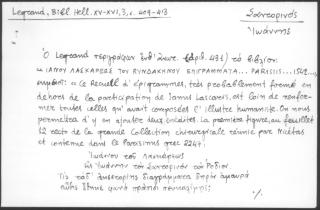 Legrand, Bibl. Hell. XV-XVI, 3, σ. 409-413
Σαντορινός
Ἰωάννης
Ὁ Legrand περιγράφων (ἀριθ. 431) τὸ βιβλίον
« ΙΑΝΟΥ ΛΑΣΚΑΡΕΩΣ ΤΟΥ ΡΥΝΔΑΚΗΝΟΥ ΕΠΙΓΡΑΜΜΑΤΑ... PARISIIS... 1542...
« Ce recueil d'épigrammes, très probablement formé en
dehors de la participation de Janus Lascaris, est loin de renfer-
mer toutes celles qu'avait composées l'illustre humaniste. On nous
permettra d'y en ajouter deux inédites. La première figure, au feuillet
12 recto de la grande Collection chirurgicale réunie par Nicétas
et contenue dans le Parisinus grec 2247:
Ἰωάννου τοῦ Λασκάρεως
εἰς Ἰωάννην τὸν Σαντορινὸν τὸν Ῥόδιον
Τίς τοῦ διαγράμματα